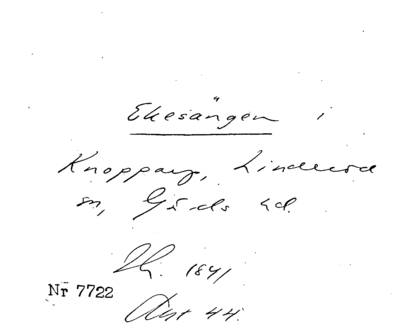 Ekesängen i
Knopparp, Linderöd
sn, Gärds hd.
1841
Nr 7722
44.